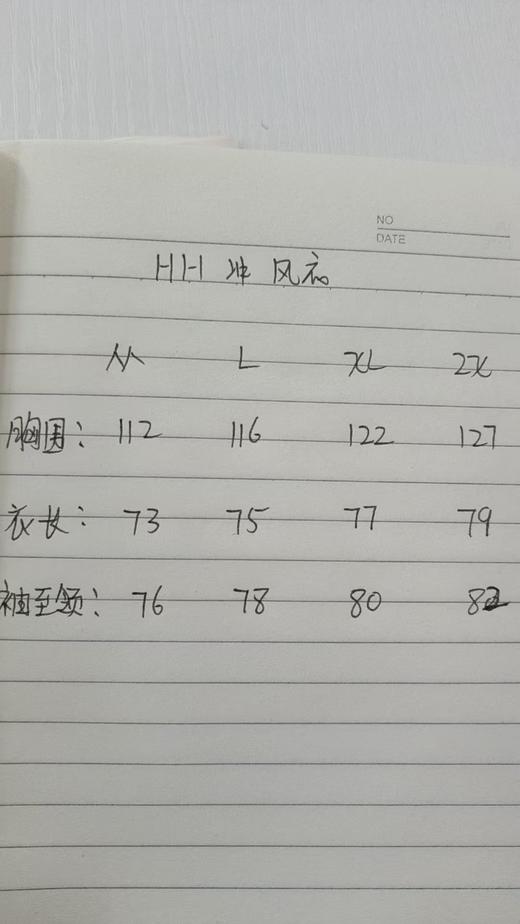 NO
DATE
HH 冲风衣
M L XL 2X
胸围: 112 116 122 127
衣长: 73 75 77 79
袖至领: 76 78 80 82